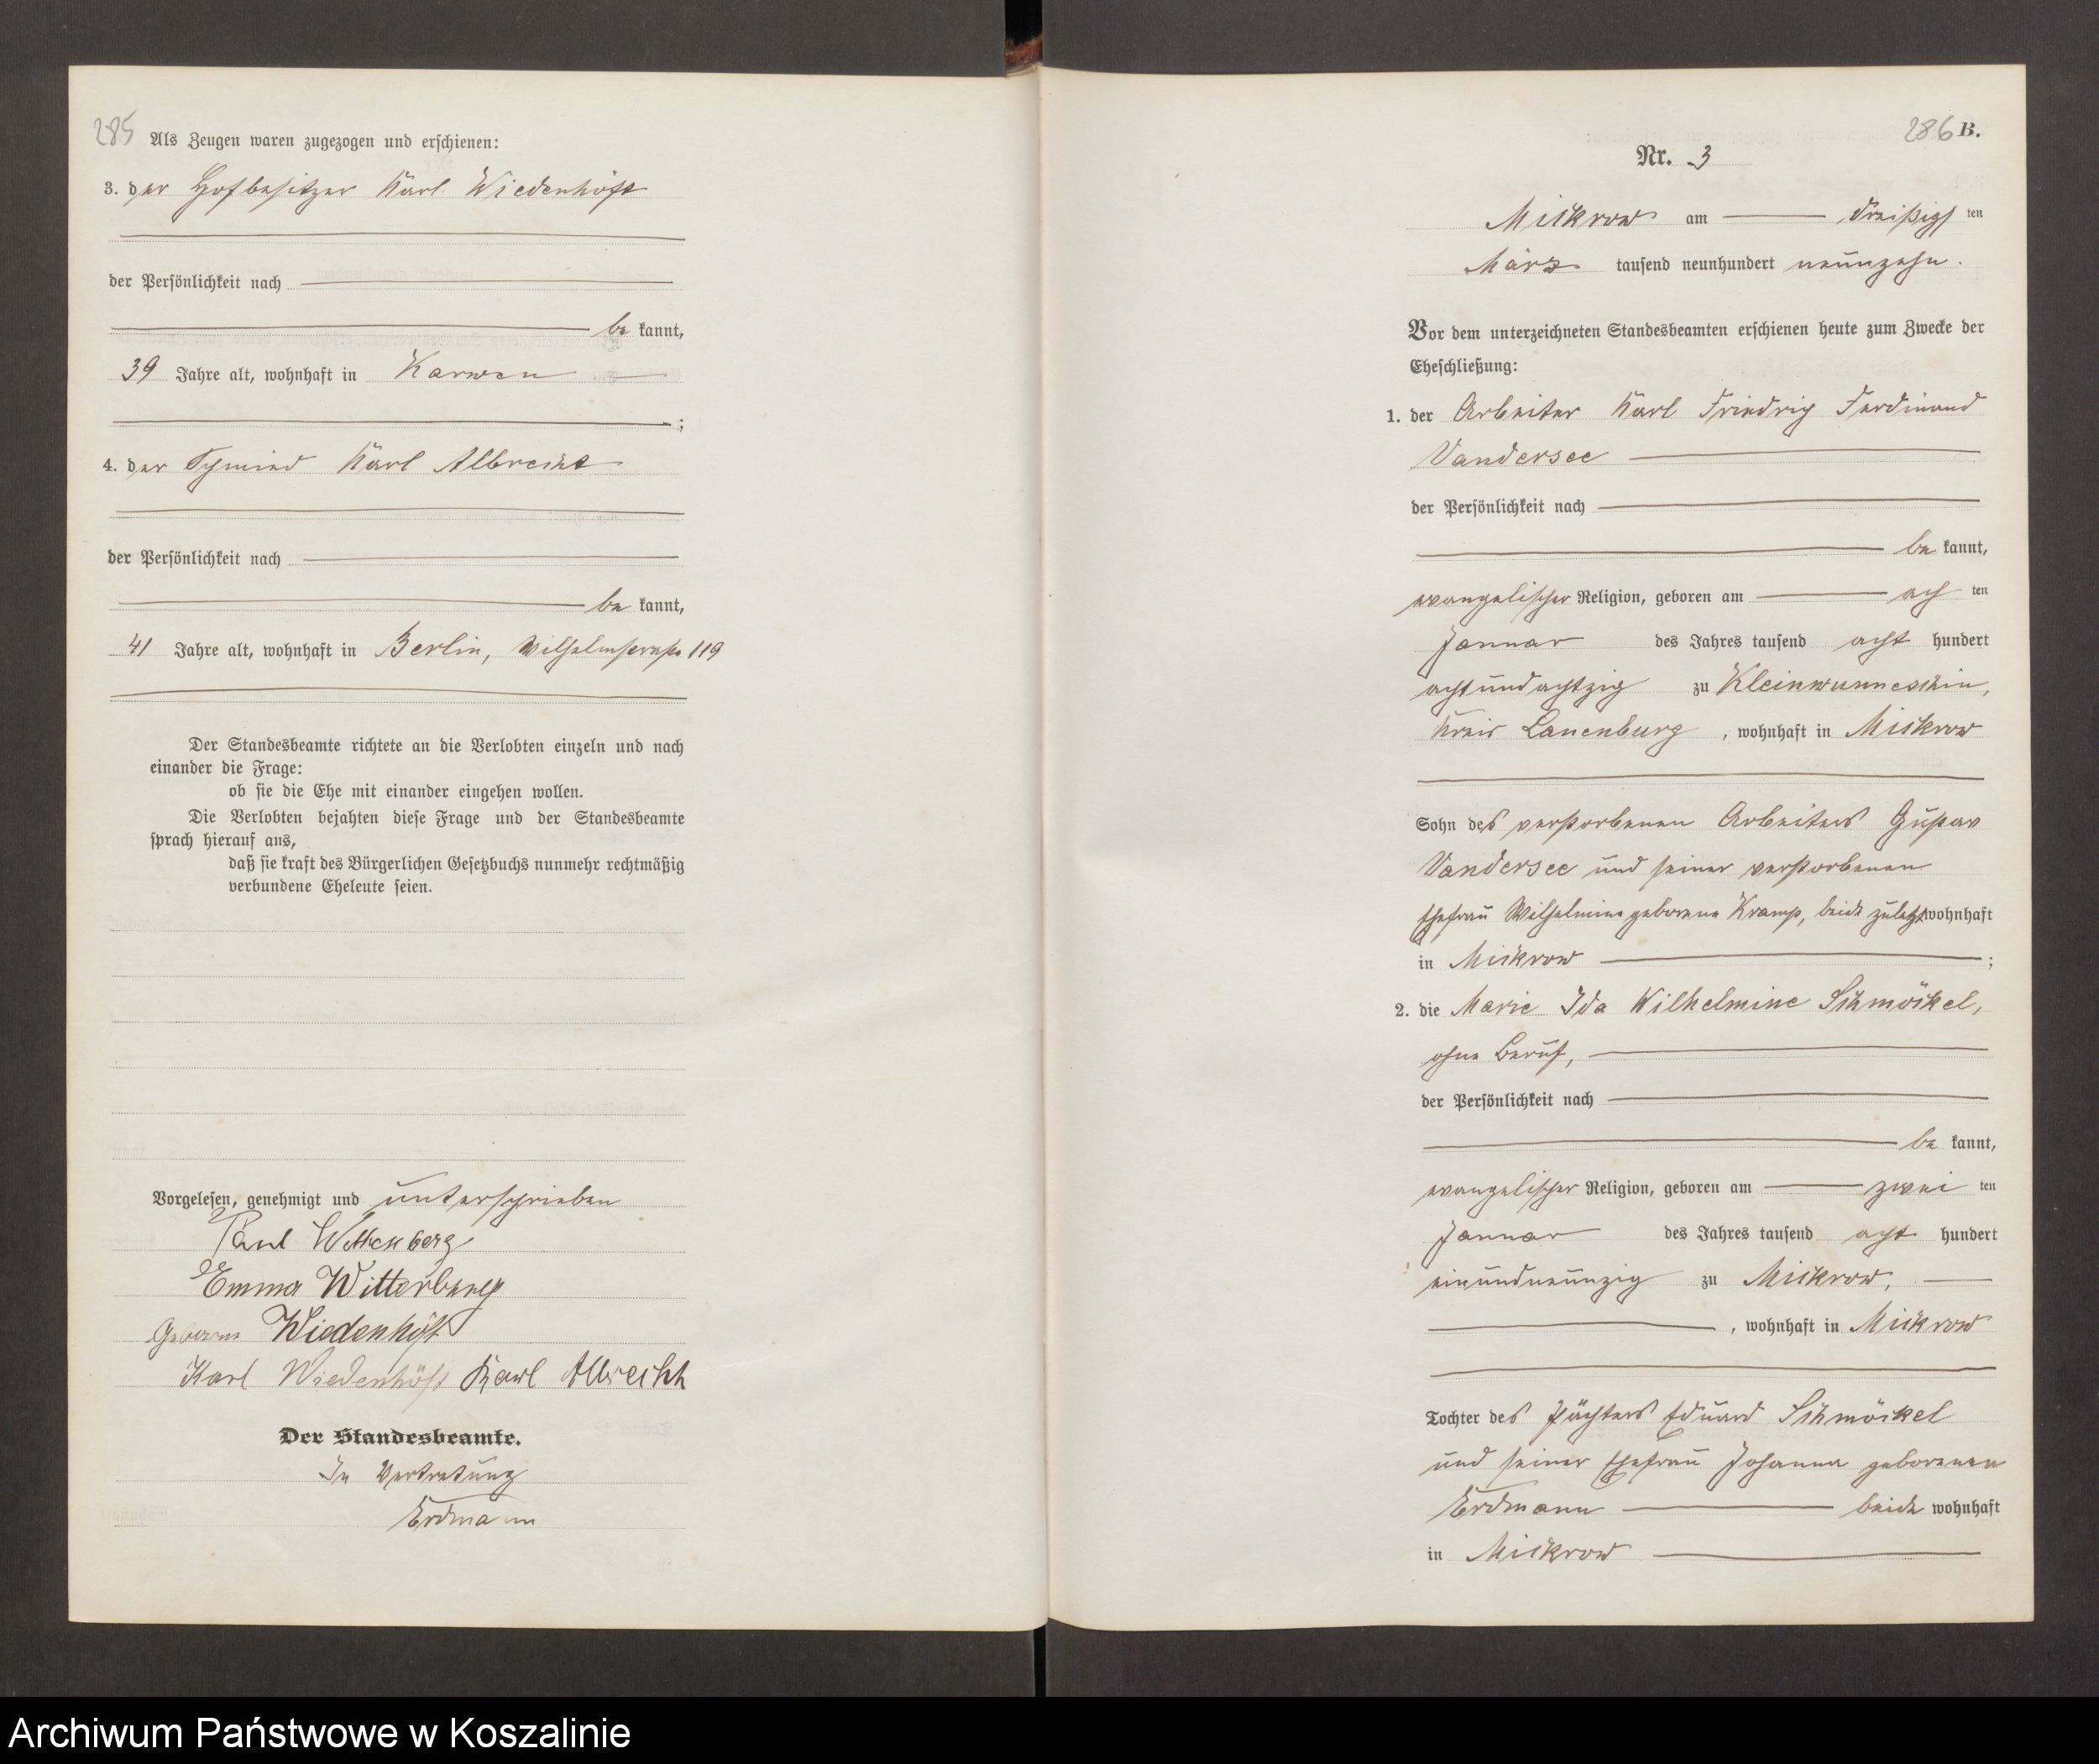 285
Als Zeugen waren zugezogen und erschienen:
3. der Hofbesitzer Karl Wiedenhöft
der Persönlichkeit nach
be kannt,
39 Jahre alt, wohnhaft in Karwen
;
4. der Schmied Karl Albrecht
der Persönlichkeit nach
be kannt,
41 Jahre alt, wohnhaft in Berlin, Wilhelmstraße 119
Der Standesbeamte richtete an die Verlobten einzeln und nach
einander die Frage:
ob sie die Ehe mit einander eingehen wollen.
Die Verlobten bejahten diese Frage und der Standesbeamte
sprach hierauf aus,
daß sie kraft des Bürgerlichen Gesetzbuchs nunmehr rechtmäßig
verbundene Eheleute seien.
Vorgelesen, genehmigt und unterschrieben
Paul Wittenberg
Emma Wittenberg
Geborene Wiedenhöft
Karl Wiedenhöft Karl Albrecht
Der Standesbeamte.
In Vertretung
Erdmann
286 B.
Nr. 3
Mickrow am dreißigs ten
März tausend neunhundert neunzehn.
Vor dem unterzeichneten Standesbeamten erschienen heute zum Zwecke der
Eheschließung:
1. der Arbeiter Karl Friedrich Ferdinand
Vandersee
der Persönlichkeit nach
be kannt,
evangelischer Religion, geboren am ach ten
Januar des Jahres tausend acht hundert
achtundachtzig zu Kleinwunneschin,
Kreis Lauenburg, wohnhaft in Mickrow
Sohn des verstorbenen Arbeiters Gustav
Vandersee und seiner verstorbenen
Ehefrau Wilhelmine geborene Kramp, beide zuletzt wohnhaft
in Mickrow ;
2. die Marie Ida Wilhelmine Schmöckel,
ohne Beruf,
der Persönlichkeit nach
be kannt,
evangelischer Religion, geboren am zwei ten
Januar des Jahres tausend acht hundert
einundneunzig zu Mickrow,
, wohnhaft in Mickrow
Tochter des Pächters Eduard Schmöckel
und seiner Ehefrau Johanna geborenen
Erdmann beide wohnhaft
in Mickrow
Archiwum Państwowe w Koszalinie